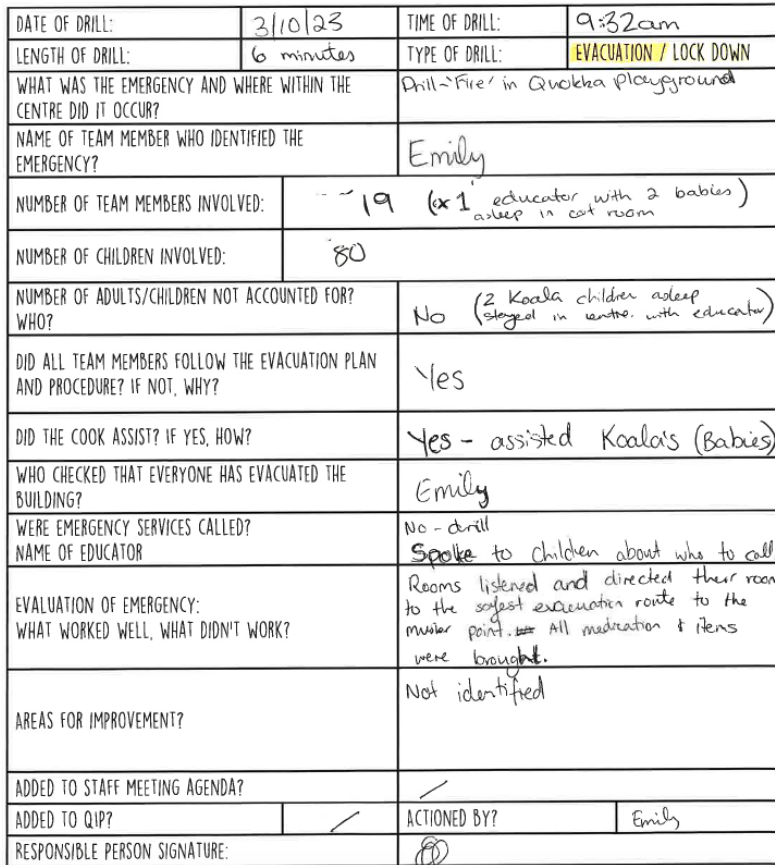 DATE OF DRILL: 3/10/23 TIME OF DRILL: 9:32am
LENGTH OF DRILL: 6 minutes TYPE OF DRILL: EVACUATION / LOCK DOWN
WHAT WAS THE EMERGENCY AND WHERE WITHIN THE
CENTRE DID IT OCCUR?
Drill-'Fire' in Quokka Playground
NAME OF TEAM MEMBER WHO IDENTIFIED THE
EMERGENCY?
Emily
NUMBER OF TEAM MEMBERS INVOLVED: 19 (x 1 educator with 2 babies)
asleep in cot room
NUMBER OF CHILDREN INVOLVED: 80
NUMBER OF ADULTS/CHILDREN NOT ACCOUNTED FOR?
WHO?
No (2 Koala children asleep
stayed in centre. with educator)
DID ALL TEAM MEMBERS FOLLOW THE EVACUATION PLAN
AND PROCEDURE? IF NOT, WHY?
Yes
DID THE COOK ASSIST? IF YES, HOW?
Yes - assisted Koala's (Babies)
WHO CHECKED THAT EVERYONE HAS EVACUATED THE
BUILDING?
Emily
WERE EMERGENCY SERVICES CALLED?
NAME OF EDUCATOR
No - drill
Spoke to children about who to call
EVALUATION OF EMERGENCY:
WHAT WORKED WELL, WHAT DIDN'T WORK?
Rooms listened and directed their room
to the safest evacuation route to the
muster point. All medication & items
were brought.
AREAS FOR IMPROVEMENT?
Not identified
ADDED TO STAFF MEETING AGENDA? /
ADDED TO QIP? / ACTIONED BY? Emily
RESPONSIBLE PERSON SIGNATURE: